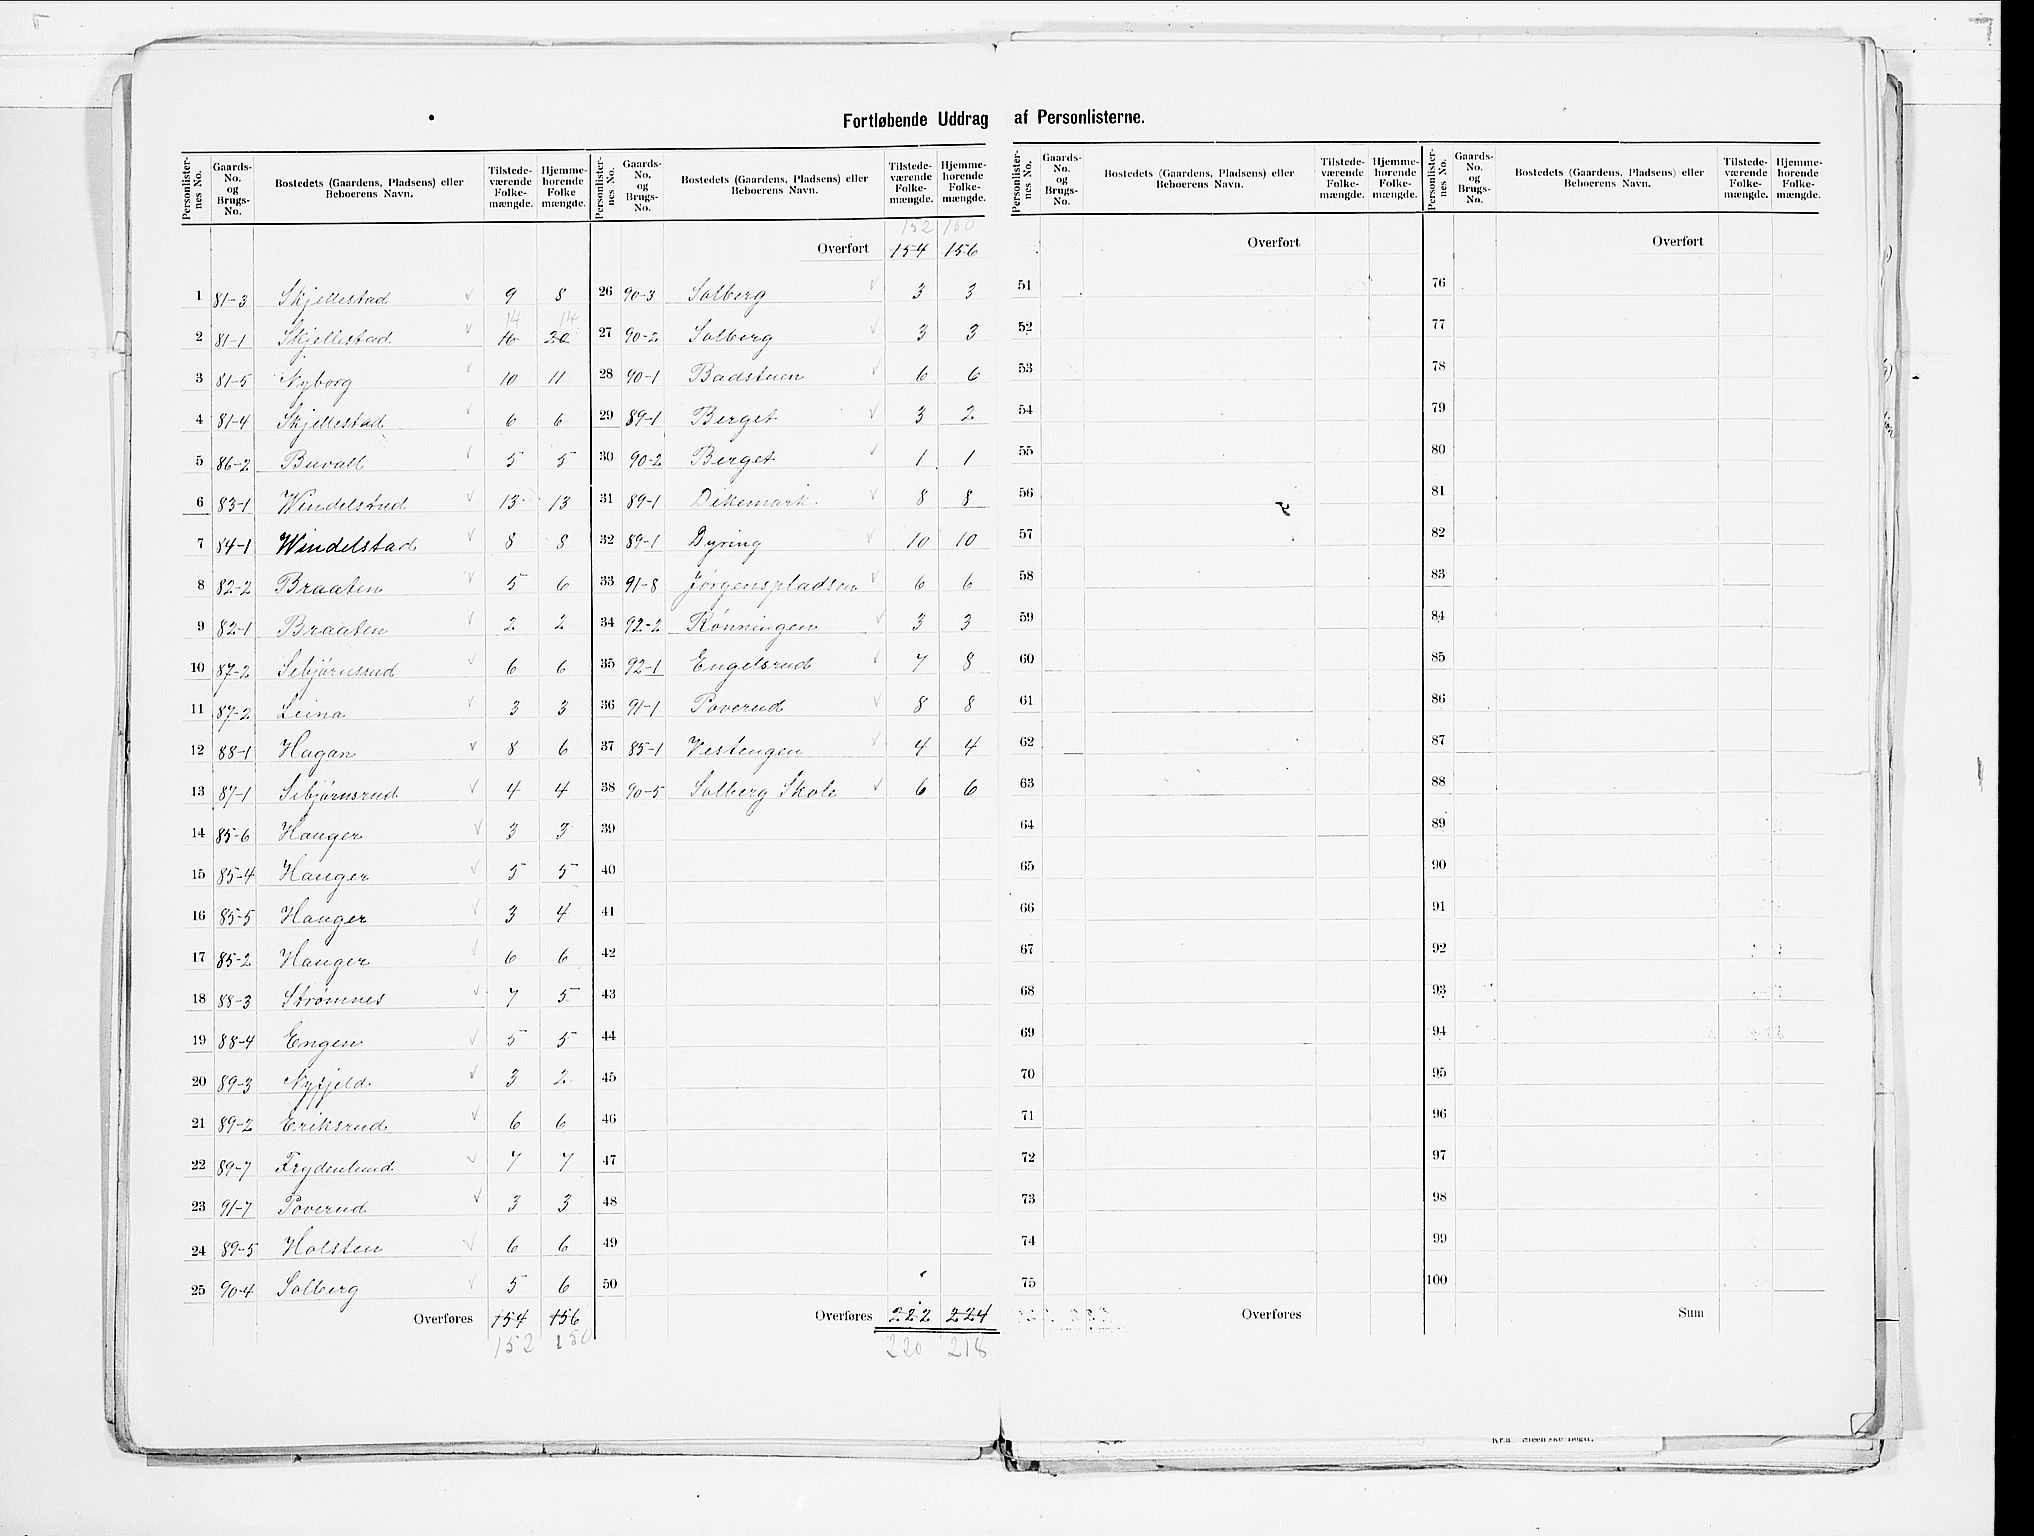 Fortløbende Uddrag af Personlisterne.
Personlister- nes No. | Gaards- No. og Brugs- No. | Bostedets (Gaardens, Pladsens) eller Beboerens Navn. | Tilstede- værende Folke- mængde. | Hjemme- hørende Folke mængde.
1 81-3 Skjellestad 9 8
14 14
2 81-1 Skjellestad 16 20
3 81-5 Nyborg 10 11
4 81-4 Skjellestad 6 6
5 86-2 Buvall 5 5
6 83-1 Windelstad 13 13
7 84-1 Windelstad 8 8
8 82-2 Braaten 5 6
9 82-1 Braaten 2 2
10 87-2 Sebjørnsrud 6 6
11 87-2 Leina 3 3
12 88-1 Hagan 8 6
13 87-1 Sebjørnsrud 4 4
14 85-6 Hauger 3 3
15 85-4 Hauger 5 5
16 85-5 Hauger 3 4
17 85-2 Hauger 6 6
18 88-3 Strømnes 7 5
19 88-4 Engen 5 5
20 89-3 Nyfjeld 3 2
21 89-2 Eriksrud 6 6
22 89-7 Frydenlund 7 7
23 91-7 Poverud 3 3
24 89-5 Holsten 6 6
25 90-4 Solberg 5 6
Overføres 154 156
152 150
Personlister- nes No. | Gaards- No. og Brugs- No. | Bostedets (Gaardens, Pladsens) eller Beboerens Navn. | Tilstede- værende Folke- mængde. | Hjemme- hørende Folke- mængde.
152 150
Overført 154 156
26 90-3 Solberg 3 3
27 90-2 Solberg 3 3
28 90-1 Badstuen 6 6
29 89-1 Berget 3 2
30 90-2 Berget 1 1
31 89-1 Dikemark 8 8
32 89-1 Dyring 10 10
33 91-8 Jørgenspladsen 6 6
34 92-2 Rønningen 3 3
35 92-1 Engelsrud 7 8
36 91-1 Poverud 8 8
37 85-1 Vestengen 4 4
38 90-5 Solberg Skole 6 6
39
40
41
42
43
44
45
46
47
48
49
50
Overføres 222 224
220 218
Personlister- nes No. | Gaards- No. og Brugs- No. | Bostedets (Gaardens, Pladsens) eller Beboerens Navn. | Tilstede- værende Folke- mængde. | Hjemme- hørende Folke- mængde.
Overført
51
52
53
54
55
56
57
58
59
60
61
62
63
64
65
66
67
68
69
70
71
72
73
74
75
Overføres
Personlister- nes No. | Gaards- No. og Brugs- No. | Bostedets (Gaardens, Pladsens) eller Beboerens Navn. | Tilstede- værende Folke- mængde. | Hjemme- hørende Folke- mængde.
Overført
76
77
78
79
80
81
82
83
84
85
86
87
88
89
90
91
92
93
94
95
96
97
98
99
100
Sum